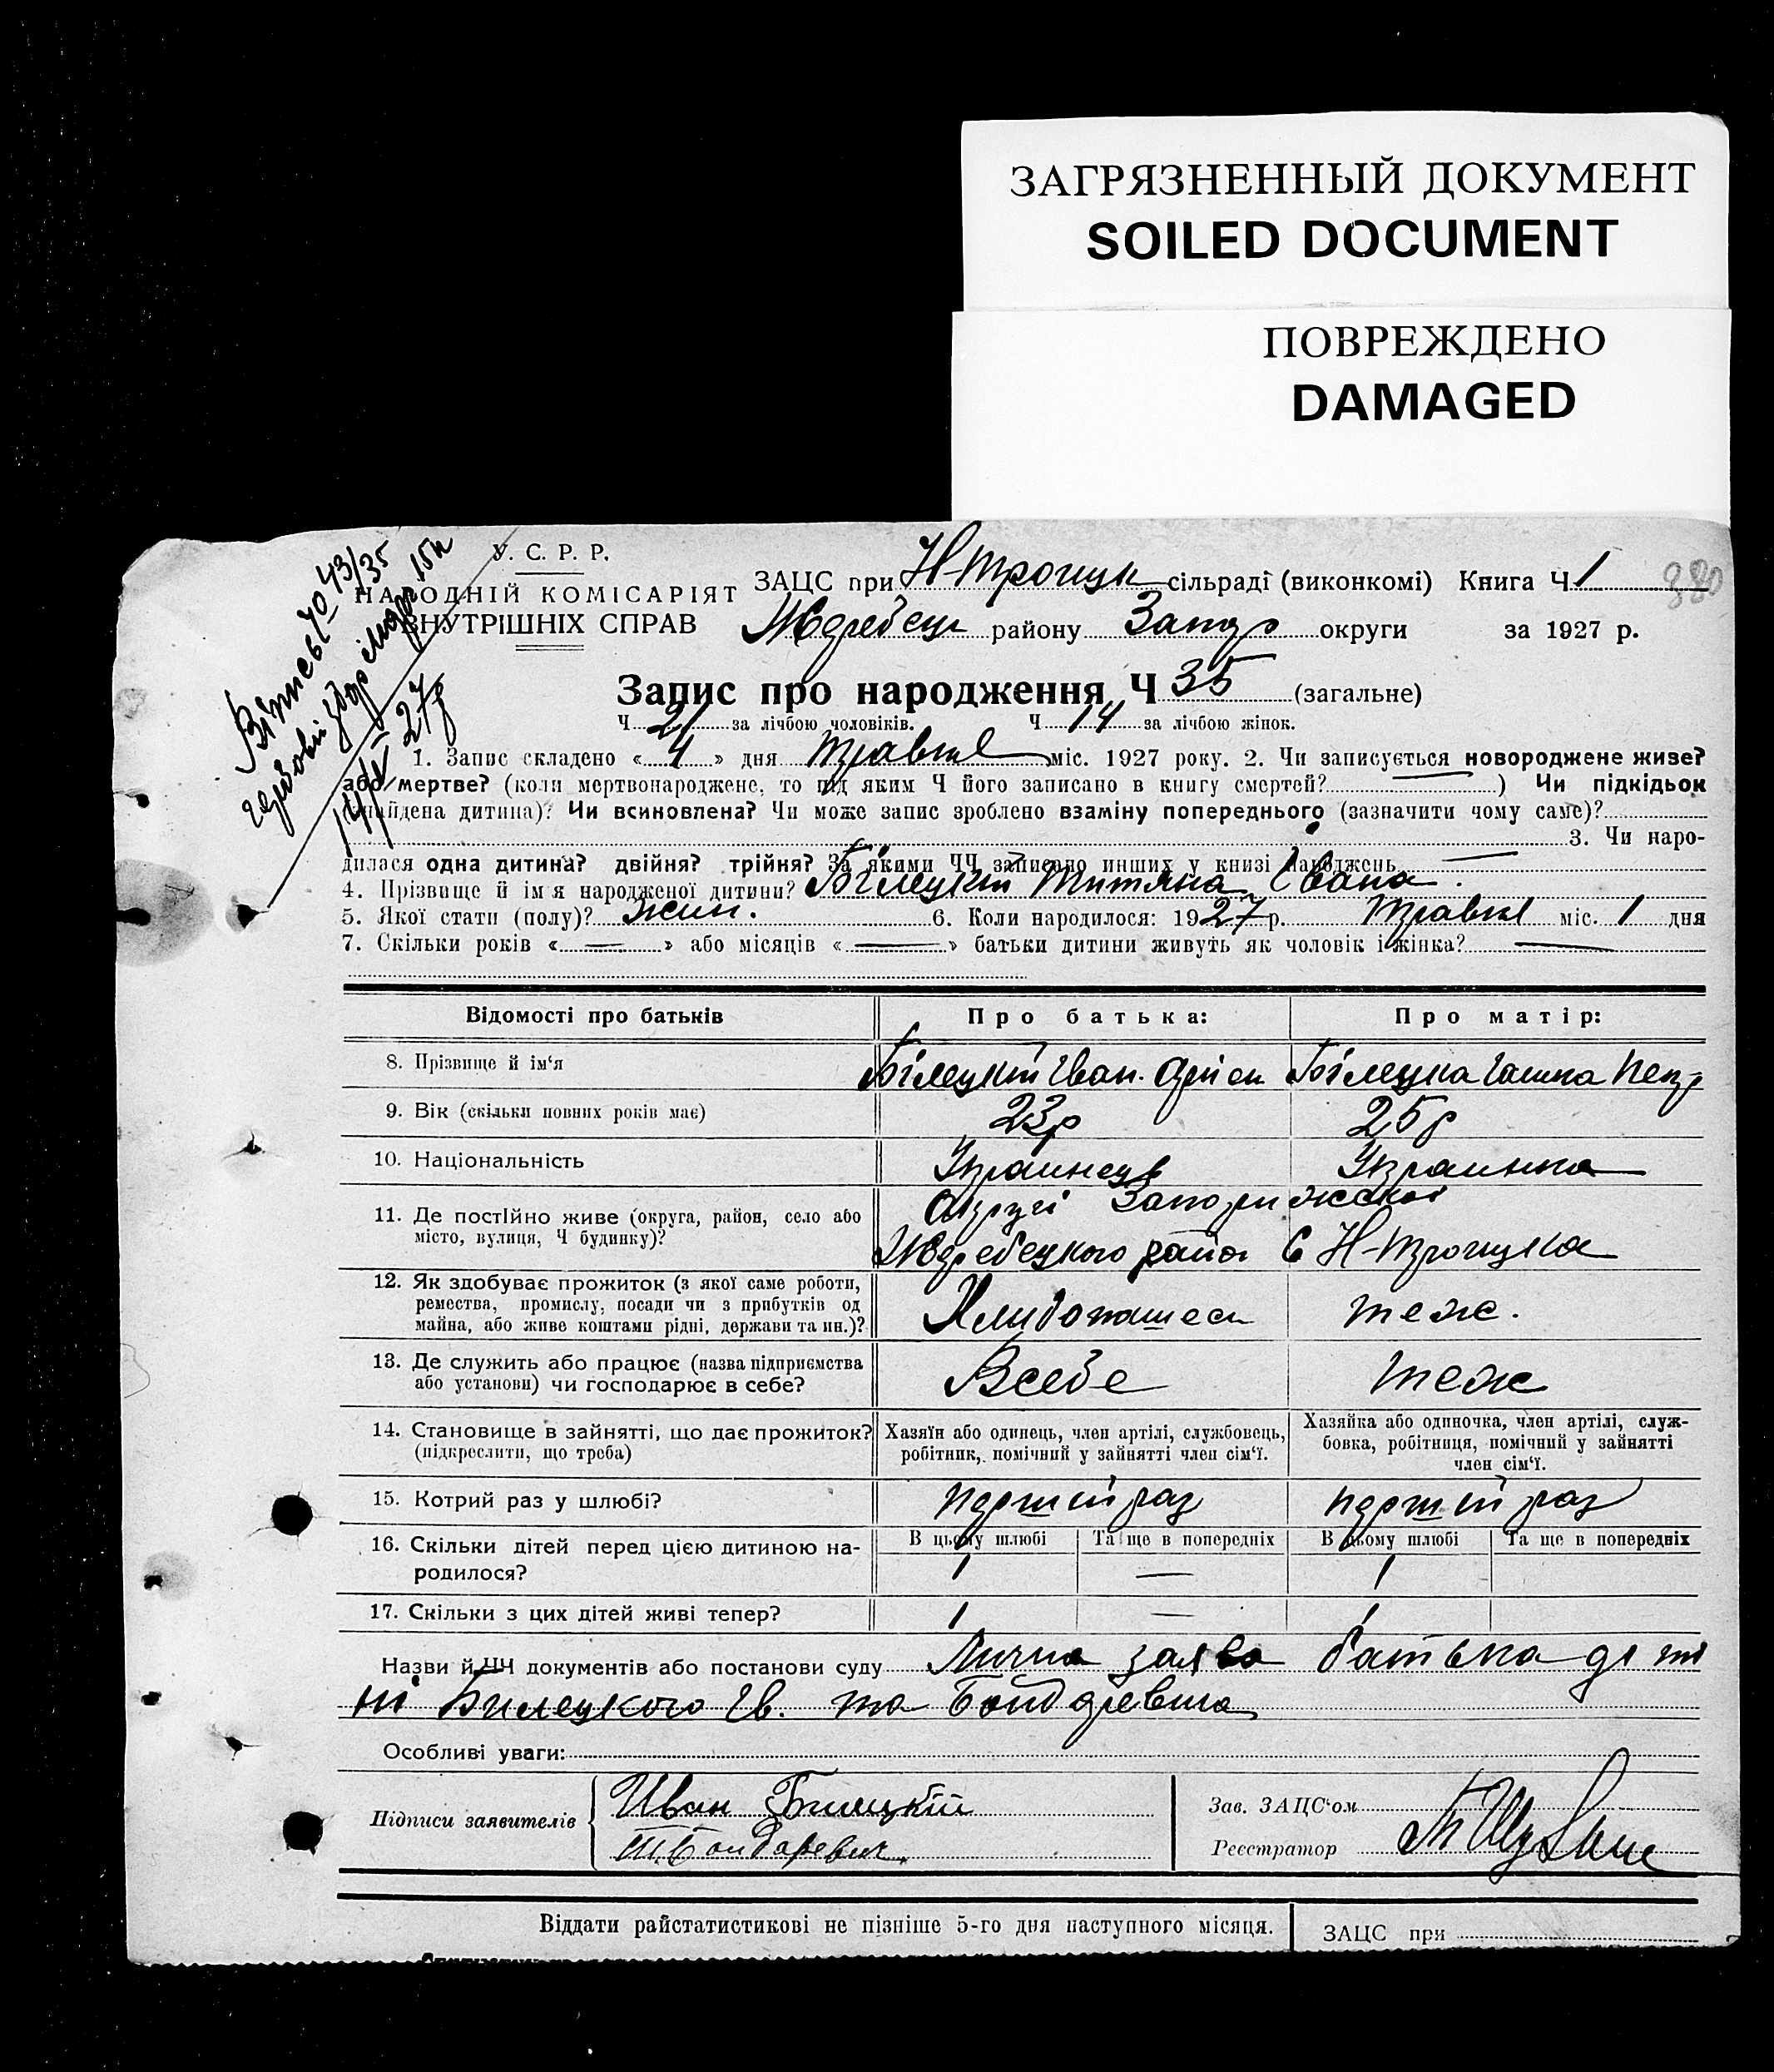 ЗАГРЯЗНЕННЫЙ ДОКУМЕНТ
SOILED DOCUMENT
ПОВРЕЖДЕНО
DAMAGED
У. С. Р. Р.
НАРОДНІЙ КОМІСАРІЯТ
ВНУТРІШНІХ СПРАВ
ЗАЦС при Н-Троицк сільраді (виконкомі) Книга Ч 1 380
Жеребець району Запор округи за 1927 р.
Запис про народження Ч 35 (загальне)
Ч 21 за лічбою чоловіків. Ч 14 за лічбою жінок.
1. Запис складено « 4 » дня травня міс. 1927 року. 2. Чи записується новороджене живе?
або мертве? (коли мертвонароджене, то під яким Ч його записано в книгу смертей? — ) Чи підкідьок
(знайдена дитина)? Чи всиновлена? Чи може запис зроблено взаміну попереднього (зазначити чому саме)?
3. Чи наро-
дилася одна дитина? двійня? трійня? За якими ЧЧ записано инших у книзі народжень —
4. Прізвище й ім'я народженої дитини? Білецкий Титяна Івана.
5. Якої стати (полу)? жин. 6. Коли народилося: 1927 р. Травня міс. 1 дня
7. Скільки років « — » або місяців « — » батьки дитини живуть як чоловік і жінка? —
Відомості про батьків Про батька: Про матір:
8. Прізвище й ім'я Білецкий Іван Білецка Пет
9. Вік (скільки повних років має) 23р 25р
10. Національність Украинець Украинка
11. Де постійно живе (округа, район, село або
місто, вулиця, Ч будинку)?
Округі Запорижскої
Жеребецкого район С Н-Троицка
12. Як здобуває прожиток (з якої саме роботи,
ремества, промислу, посади чи з прибутків од
майна, або живе коштами рідні, держави та ин.)?
Хлибопашест теж.
13. Де служить або працює (назва підприємства
або установи) чи господарює в себе?
Всебе теж
14. Становище в зайнятті, що дає прожиток?
(підкреслити, що треба)
Хазяїн або одинець, член артілі, службовець,
робітник, помічний у зайнятті член сім'ї.
Хазяйка або одиночка, член артілі, служ-
бовка, робітниця, помічний у зайнятті
член сім'ї.
15. Котрий раз у шлюбі? перший раз перший раз
16. Скільки дітей перед цією дитиною на-
родилося?
В цьому шлюбі Та ще в попередніх В цьому шлюбі Та ще в попередніх
1 — 1
17. Скільки з цих дітей живі тепер? 1 — 1
Назви й ЧЧ документів або постанови суду Лична заява батька дити
ні Билецкого Ів. та Бондаревича
Особливі уваги:
Підписи заявителів
Иван Билецкій
Т. Бондаревич.
Зав. ЗАЦС'ом
Реєстратор
Віддати райстатистикові не пізніше 5-го дня наступного місяця. ЗАЦС при